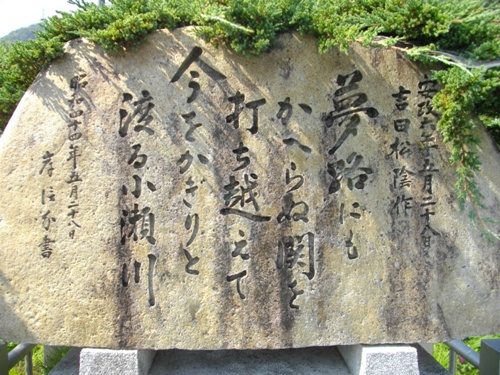 安政六年五月二十八日
吉田松陰作
夢路にも
かへらぬ関を
打ち越えて
今をかぎりと
渡る小瀬川
昭和四十四年五月二十八日
岸信介書